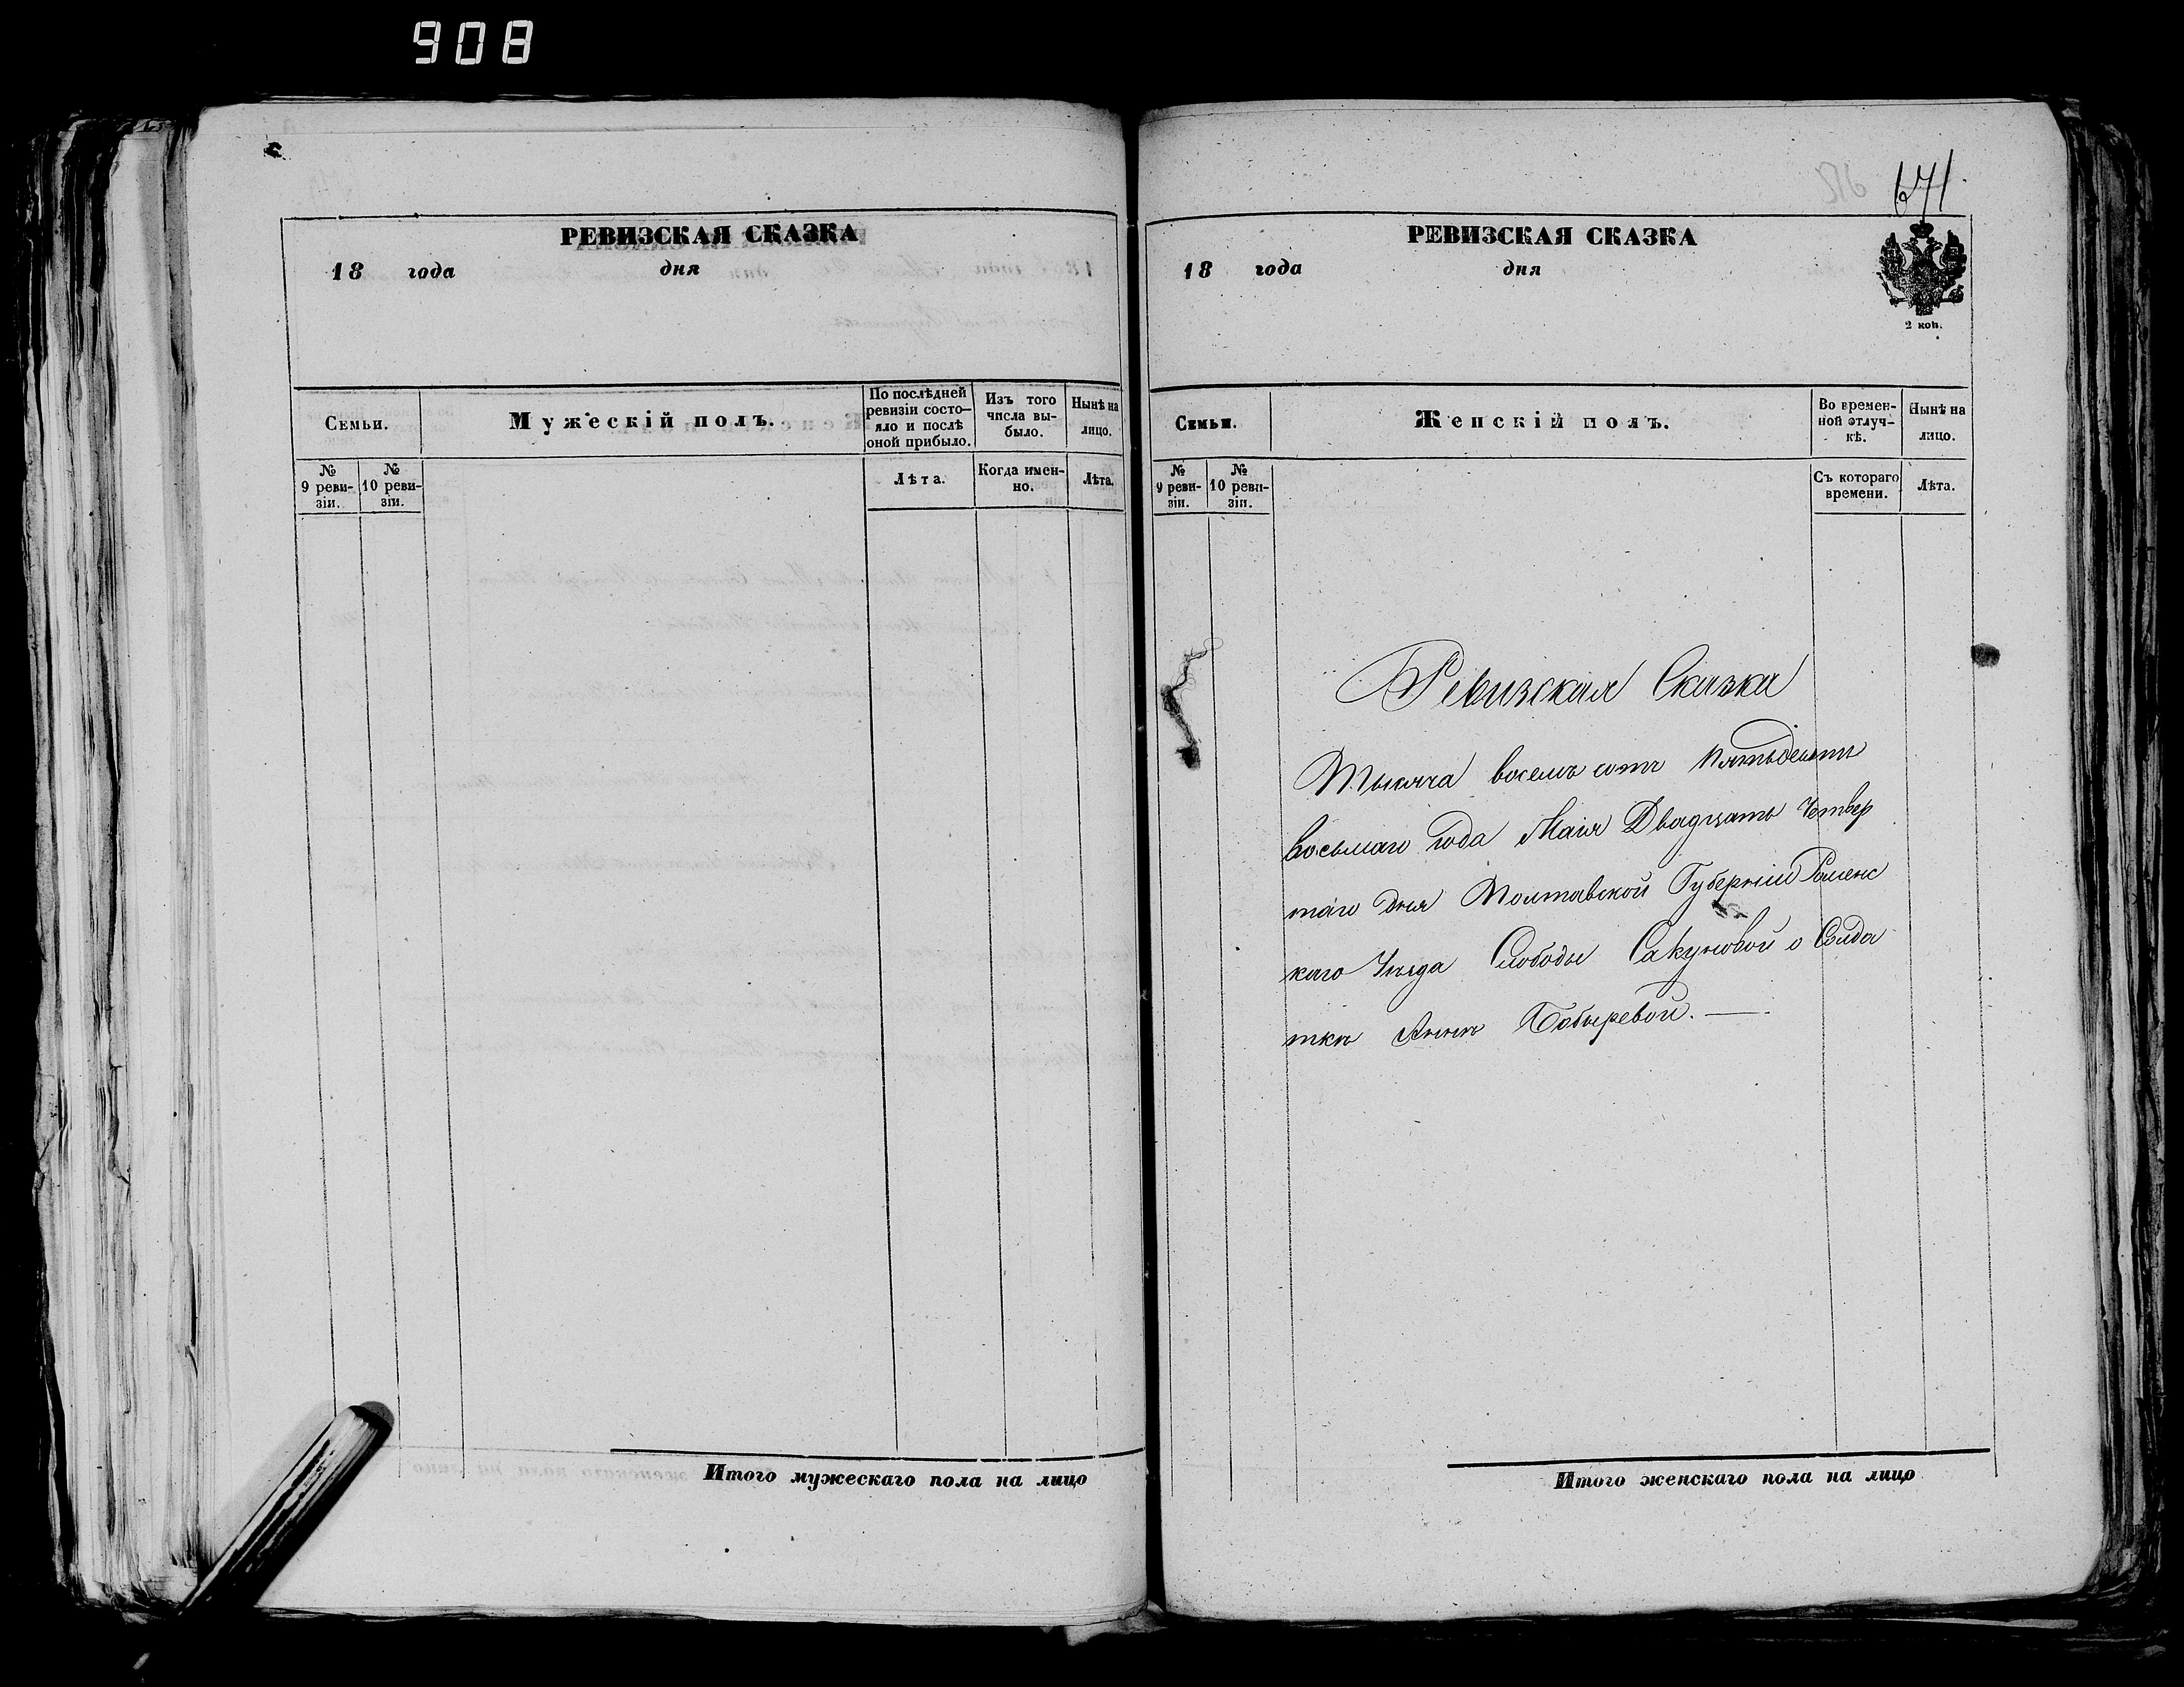 908
РЕВИЗСКАЯ СКАЗКА
18 года дня
Семьи.
Мужескій полъ.
По послѣдней
ревизіи состо-
яло и послѣ
оной прибыло.
Изъ того
числа вы-
было.
Нынѣ на
лицо.
№
9 реви-
зіи.
№
10 реви-
зіи.
Лѣта.
Когда имен-
но.
Лѣта.
Итого мужескаго пола на лицо
671
РЕВИЗСКАЯ СКАЗКА
18 года дня
2 коп.
Семьи.
Женскій полъ.
Во времен-
ной отлуч-
кѣ.
Нынѣ на
лицо.
№
9 реви-
зіи.
№
10 реви-
зіи.
Съ котораго
времени.
Лѣта.
Ревизская Сказка
Тысяча восемъ сотъ пятьдесятъ
восьмаго года Маія Двадцать четвер
таго дня Полтавской Губерніи Роменс
каго Уѣзда Слободы Сакуновой о Солда
ткѣ Аннѣ Бобыревой. —
Итого женскаго пола на лицо